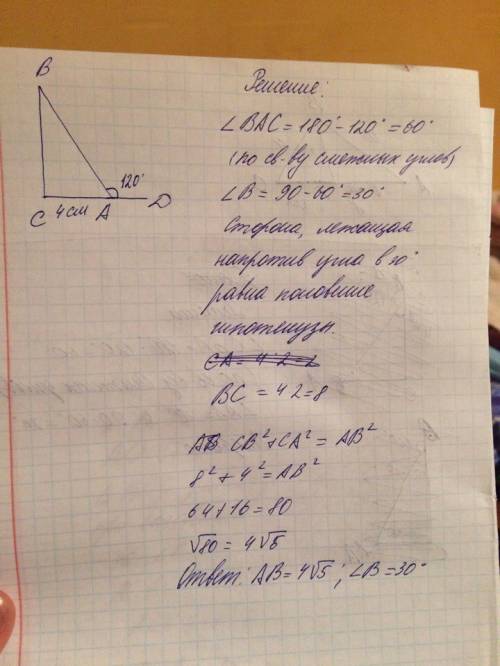 B
120°
C 4см A D
Решение:
∠BAC = 180° - 120° = 60°
(по св-ву смежных углов)
∠B = 90 - 60° = 30°
Сторона, лежащая
напротив угла в 30°
равна половине
гипотенузы.
CA = 4·2 =
BC = 4·2 = 8
AB CB² + CA² = AB²
8² + 4² = AB²
64 + 16 = 80
√80 = 4√5
Ответ: AB = 4√5; ∠B = 30°